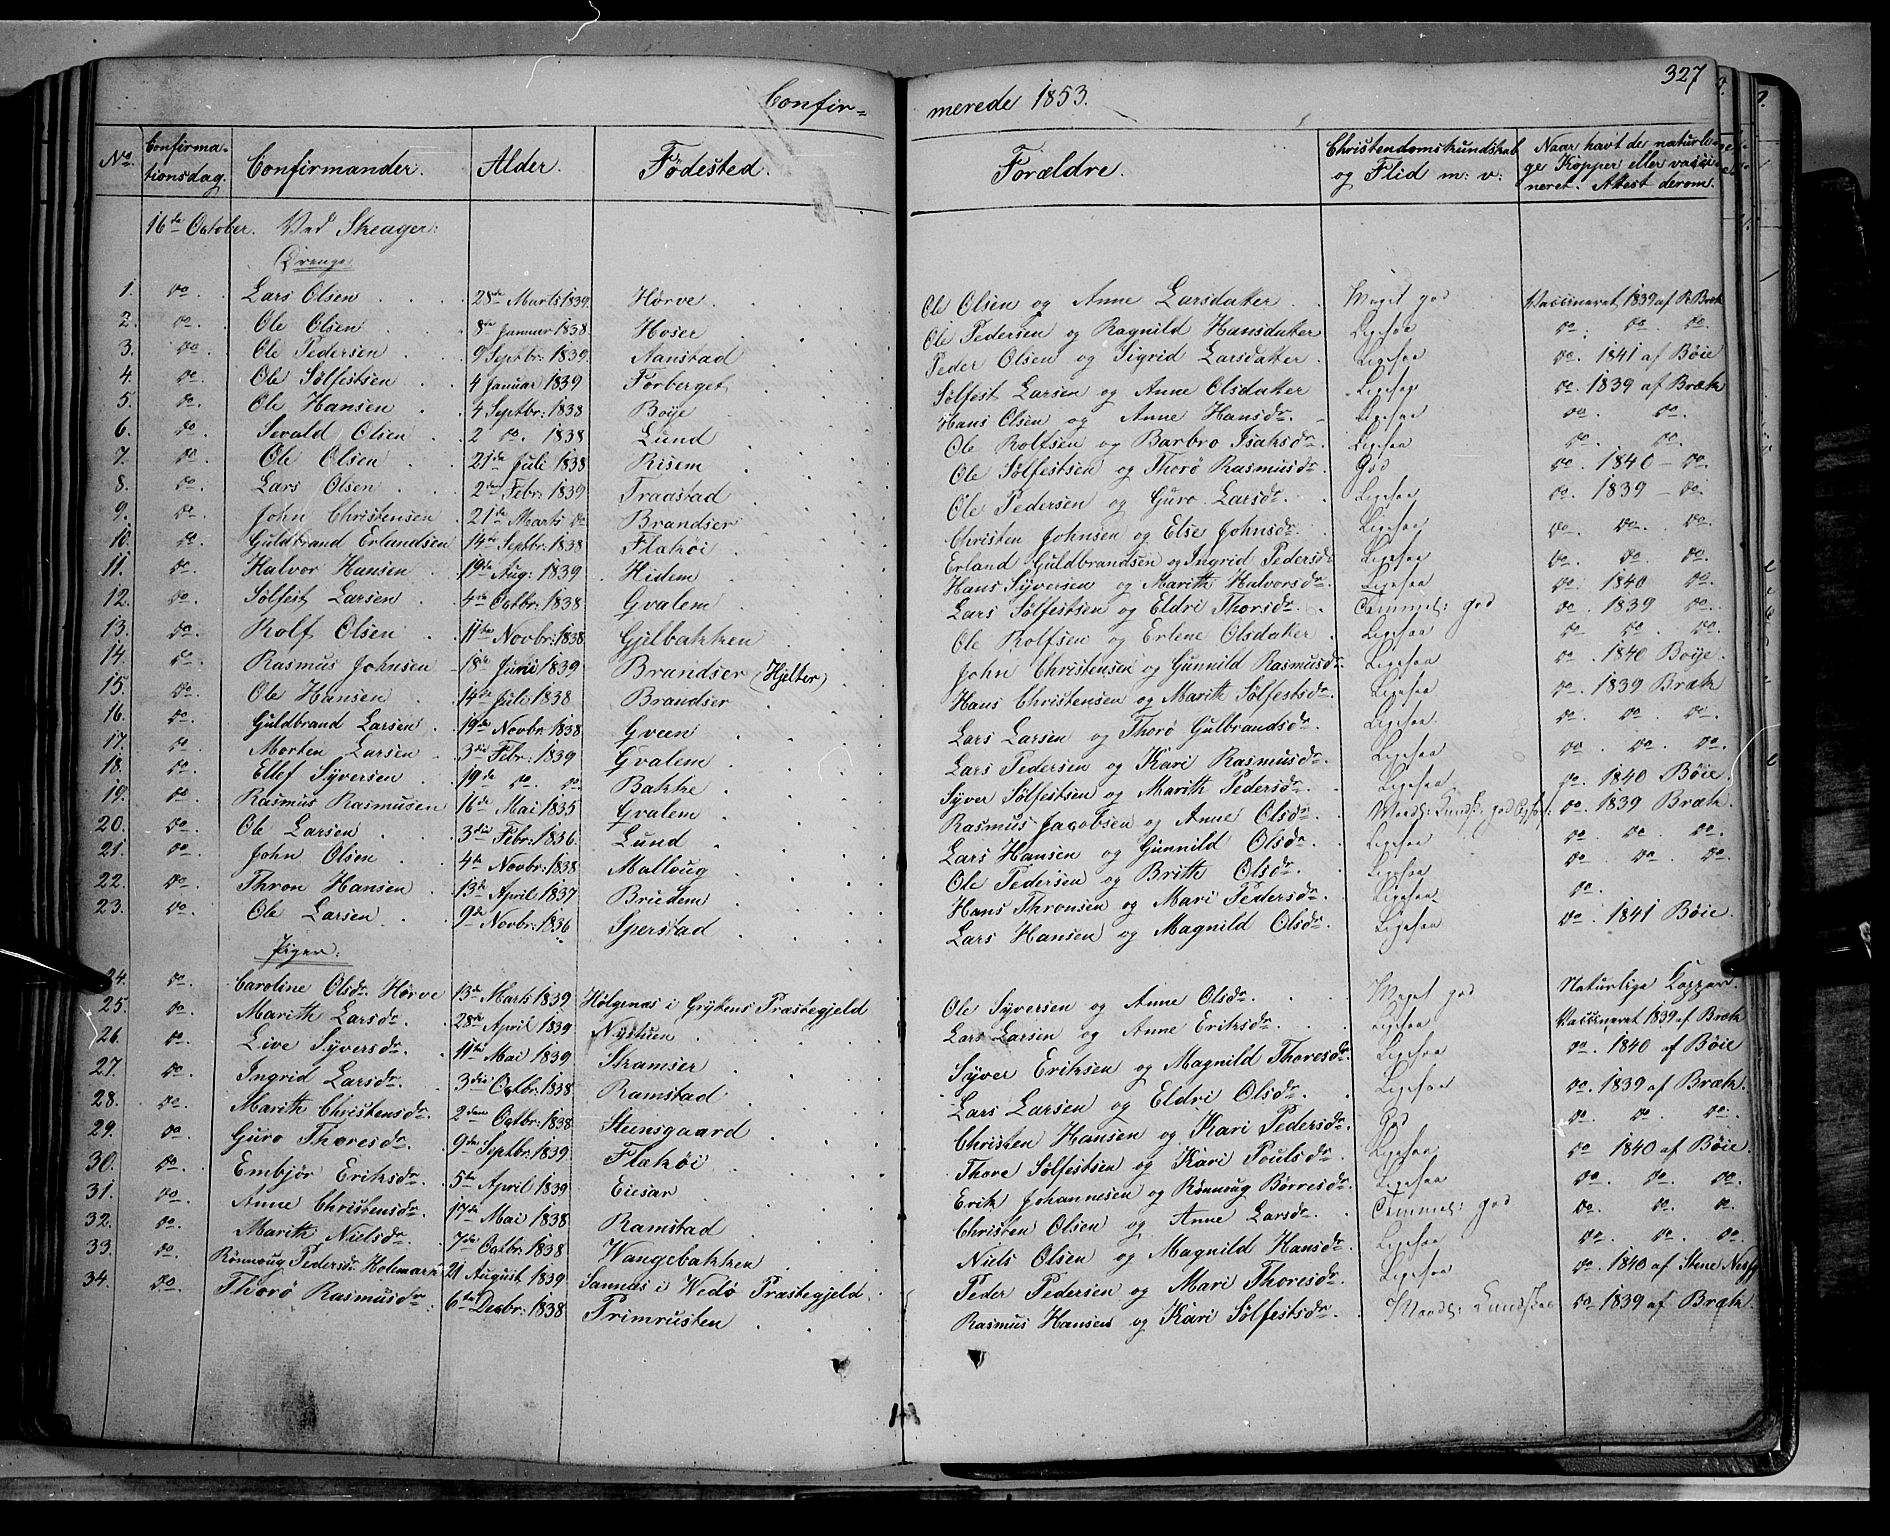 327
Confir= merede 1853.
No. Confirma-tionsdag. Confirmander. Alder. Födested. Forældre. Christendomskundskab og Flid m: v: Naar havt de naturlige Kopper eller vaccineret. Attest derom.
16de October. Ved Skeager:
Drenge
1. do. Lars Olsen 28de Marts 1839. Hörve. Ole Olsen og Anne Larsdatter. Meget god Vaccineret 1839 af P. Bræk
2. do. Ole Olsen 8de Januar 1838. Hoser. Ole Pedersen og Ragnild Hansdatter Ligesaa do. do. do.
3. do. Ole Pedersen 9 Septbr: 1839. Aanstad Peder Olsen og Sigrid Larsdatter. Ligesaa do. 1841 af Böie
4. do. Ole Sølfestsen 4 Januar 1839 Forberget Sølfest Larsen og Anne Olsdatter Ligesaa do. 1839 af Bræk
5. do. Ole Hansen 4 Septbr: 1838 Boije Hans Olsen og Anne Hansdr. Ligesaa do. do.
6. do. Sevald Olsen 2 do. 1838 Lund Ole Rolfsen og Barbro Isaksdr. Ligesaa do. do.
7. do. Ole Olsen 21de Juli 1838 Risem Ole Sølfestsen og Thorö Rasmusdr. God do. 1840 - do.
8. do. Lars Olsen 2den Febr: 1839 Traastad Ole Pedersen og Guro Larsdr. Ligesaa do. 1839 - do.
9. do. John Christensen 21de Marts do Brandser Christen Johnsen og Else Johnsdr. Ligesaa do. do. do.
10. do. Guldbrand Erlandsen 14de Septbr: 1838 Flatöi Erland Guldbrandsen og Ingrid Pedersd Ligesaa do. do. do.
11. do. Halvor Hansen 19de Aug: 1839 Hidem Hans Syversen og Marith Halvorsdr. Ligesaa do. 1840 do.
12. do. Sölfest Larsen 4de Octbr: 1838 Gvalem Lars Sølfestsen og Eldri Thorsdr. Temmel: god do. 1839 do.
13. do. Rolf Olsen 11te Novbr: 1838. Gjelbakken Ole Rolfsen og Erlene Olsdatter Ligesaa do. do. do.
14. do. Rasmus Johnsen 18de Juni 1839 Brandser (Hjelter) John Christensen og Gunnild Rasmusdr. Ligesaa do. 1840 Boije.
15. do. Ole Hansen 14de Juli 1838 Brandser Hans Christensen og Marith Sølfestsdr. Ligesaa do. 1839 Bræk
16. do. Guldbrand Larsen 19de Novbr: 1838 Gveen Lars Larsen og Thorö Gulbrandsdr. Ligesaa do. do. do.
17. do. Morten Larsen 3die Febr: 1839 Gvalem Lars Pedersen og Kari Rasmusdr. Ligesaa do. do. do.
18. do. Ellef Syversen 19de do. do. Bakke Syver Sølfestsen og Marith Pedersdr. Ligesaa do. 1840 Böie.
19. do. Rasmus Rasmusen 16de Mai 1835 Gvalem Rasmus Jacobsen og Anne Olsdr. do. 1839 Bræk.
20. do. Ole Larsen 3die Febr: 1836. Lund Lars Hansen og Gunnild Olsdr. Ligesaa do. do. do.
21. do. John Olsen 4de Novbr: 1838 Mallvug Ole Pedersen og Brith Olsdr. Ligesaa do. do. do.
22. do. Thron Hansen 13de April 1837 Briedem Hans Thronsen og Mari Pedersdr. Ligesaa do.
23. do. Ole Larsen 9de Novbr: 1836 Sperstad Lars Hansen og Magnild Olsdr. Ligesaa do. 1841 Böie.
Piger:
24. do. Caroline Olsdr. Hörve 13de Marts 1839 Hølgenæs i Grytens Præstegjeld Ole Syversen og Anne Olsdr. Meget god Naturlige Kopper.
25. do. Marith Larsdr. 28de April 1839 Nystuen Lars Larsen og Anne Eriksdr. Ligesaa Vaccineret 1839 af Bræk
26. do. Live Syversdr. 11te Mai 1839 Stramser Syver Eriksen og Magnild Thoresdr. Ligesaa do. 1840 af Böie
27. do. Ingrid Larsdr. 3die Octbr: 1838 Ramstad Lars Larsen og Eldri Olsdr. Ligesaa do. 1839 af Bræk.
28. do. Marith Christensdr. 2den Octbr: 1838 Steensgaard Christen Hansen og Kari Pedersdr. God do. do. do.
29. do. Guro Thoresdr. 9de Septbr: 1839 Flatöi Thore Sølfestsen og Kari Poulsdr. Ligesaa do 1840 af Böie.
30. do. Embjör Eriksdr. 5te April 1839 Eiesar Erik Johannesen og Rönnoug Börresdr. Ligesaa do. do. do.
31. do. Anne Christensdr. 17de Mai 1838 Ramstad Christen Olsen og Anne Larsdr. Temmel: god do. do. do.
32. do. Marith Nielsdr. 7de Octbr: 1838 Wangebakken Niels Olsen og Magnild Hansdr. Ligesaa do. do. do.
33. do. Rönnoug Pedersdr. Holemark 21 August 1839 Sannæs i Wedö Præstegjeld. Peder Pedersen og Mari Thoresdr. Ligesaa do. 1840 af
34. do. Thorö Rasmusdr. 6te Decbr: 1838 Trimrusten Rasmus Hansen og Kari Sølfestsdr. do 1839 af Bræk.